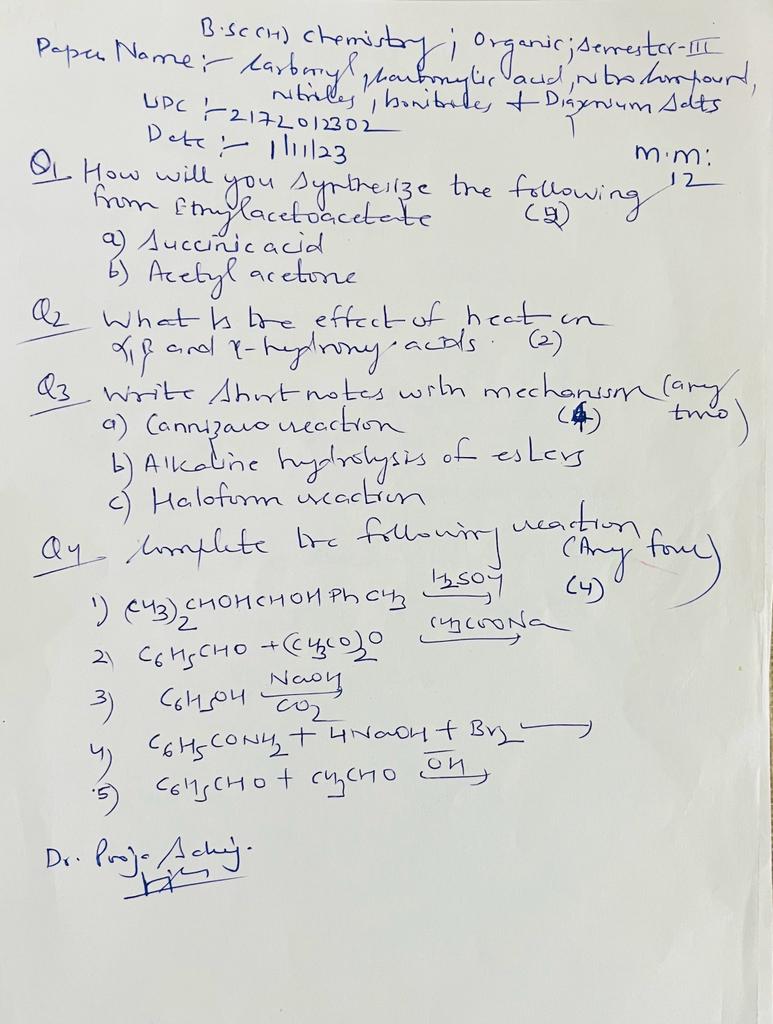 B.Sc (H) Chemistry ; Organic ; Semester-III
Paper Name :- Carbonyl, carboxylic acid, nitro compound,
nitriles, isonitriles + Diazonium Salts
UPC :- 2172012302
Date :- 1/11/23
M.M: 12
Q1 How will you synthesize the following
from Ethylacetoacetate (2)
a) Succinic acid
b) Acetyl acetone
Q2 What is the effect of heat on
α, β and γ-hydroxy acids. (2)
Q3 Write Short notes with mechanism (any two)
a) Cannizaro reaction (4)
b) Alkaline hydrolysis of esters
c) Haloform reaction
Q4 Complete the following reaction (Any four)
1) (CH3)2CHOHCHOHPhCH3 H2SO4 → (4)
2) C6H5CHO + (CH3CO)2O CH3COONa →
3) C6H5OH NaOH CO2
4) C6H5CONH2 + 4NaOH + Br2 →
5) C6H5CHO + CH3CHO OH →
Dr.